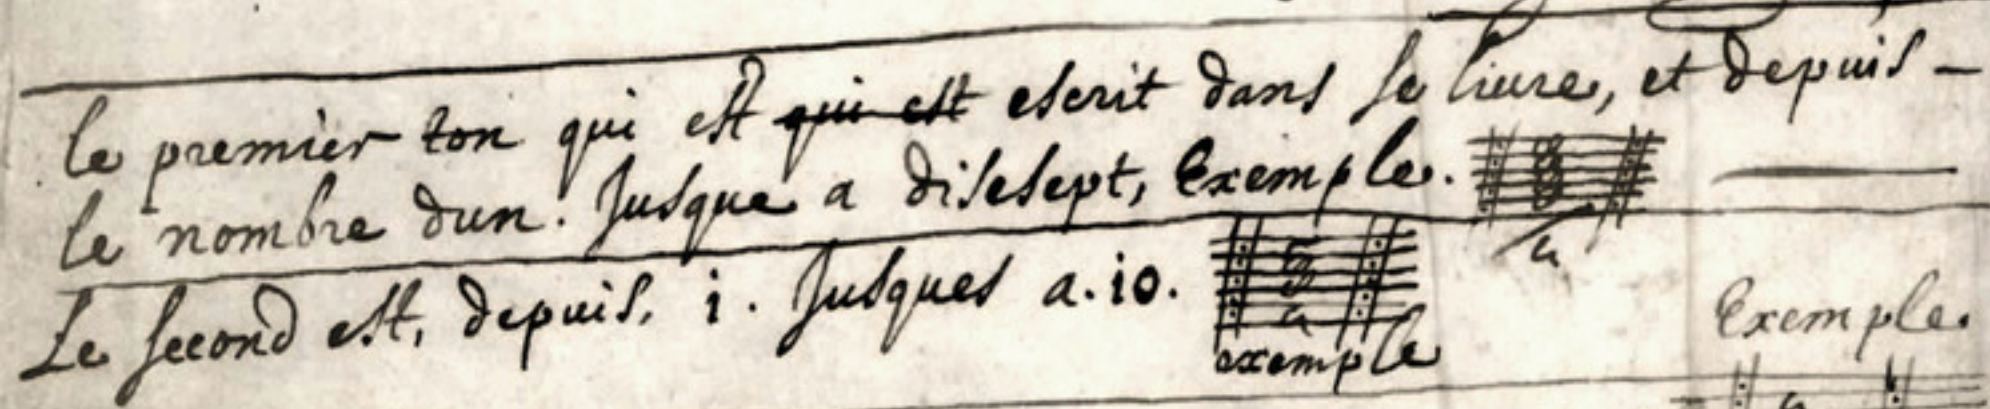 le premier ton qui est qui est escrit dans se liure, et depuis –
le nombre dun. Jusque a disesept, Exemple.
Le second est, depuis, i. Jusques a. io.
exemple
Exemple.